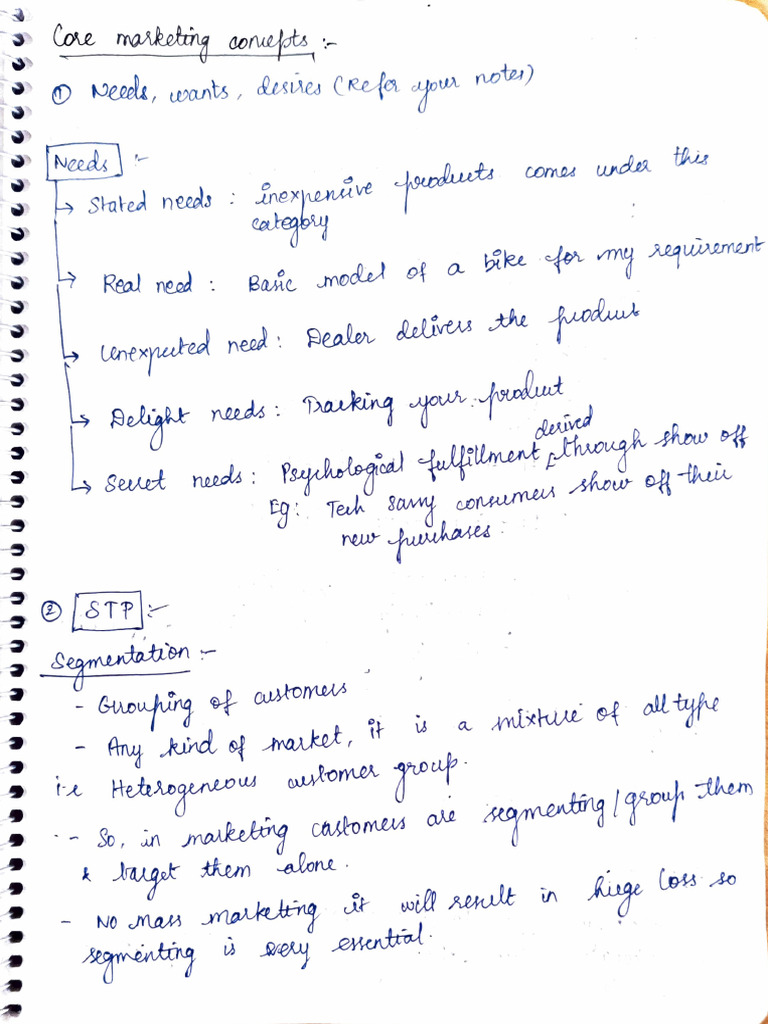 Core marketing concepts :-
① Needs, wants, desires (Refer your notes)
Needs :-
→ Stated needs : inexpensive products comes under this
category
→ Real need : Basic model of a bike for my requirement
→ Unexpected need : Dealer delivers the product
→ Delight needs : Tracking your product
derived
→ Secret needs : Psychological fulfillment through show off
Eg : Tech savvy consumers show off their
new purchases
② STP :-
Segmentation :-
- Grouping of customers
- Any kind of market, it is a mixture of all type
i.e Heterogeneous customer group.
- So, in marketing customers are segmenting / group them
& target them alone.
- No mass marketing it will result in huge loss so
segmenting is very essential.